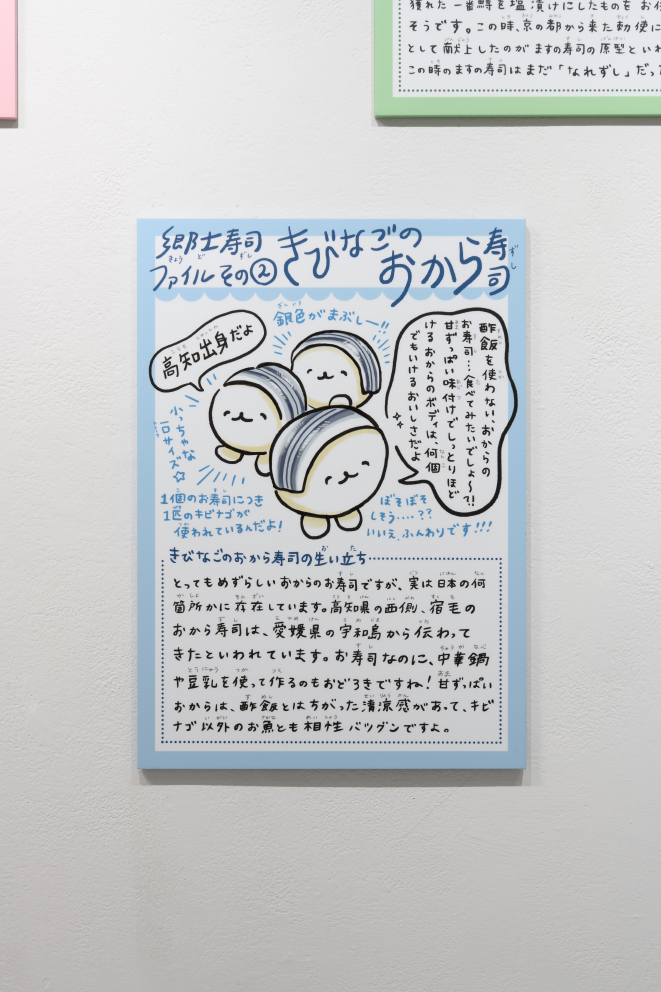 獲れた一番鱒を塩漬けにしたものをお
そうです。この時、京の都から来た勅使に
として献上したのがますの寿司の原型といわ
この時のますの寿司はまだ「なれずし」だっ
郷土寿司
ファイルその②
きびなごの
おから寿司
高知出身だよ
銀色がまぶしー!!
小っちゃな
一口サイズ☆
酢飯を使わない、おからの
お寿司…食べてみたいでしょ〜?!
甘ずっぱい味付けでしっとりほど
けるおからのボディは、何個
でもいけるおいしさだよ
1個のお寿司につき
1匹のキビナゴが
使われているんだよ!
ぼそぼそ
しそう‥‥??
いいえ、ふんわりです!!!
きびなごのおから寿司の生い立ち
とってもめずらしいおからのお寿司ですが、実は日本の何
箇所かに存在しています。高知県の西側、宿毛の
おから寿司は、愛媛県の宇和島から伝わって
きたといわれています。お寿司なのに、中華鍋
や豆乳を使って作るのもおどろきですね!甘ずっぱい
おからは、酢飯とはちがった清涼感があって、キビ
ナゴ以外のお魚とも相性バツグンですよ。